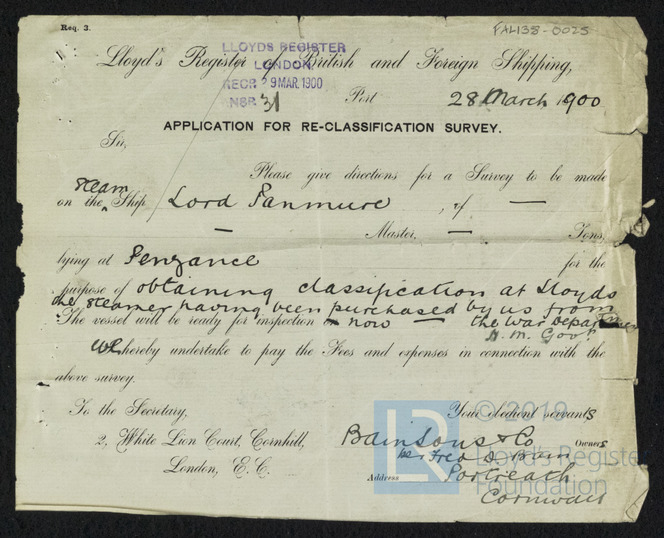 Req. 3.
FAL135-0025
Lloyd's Register of British and Foreign Shipping,
LLOYDS REGISTER
LONDON
RECR 29 MAR. 1900
ANSR 31
Port 28 March 1900
APPLICATION FOR RE-CLASSIFICATION SURVEY.
Sir,
Please give directions for a Survey to be made
on the Steam Ship Lord Panmure, of —
— Master, — Tons,
lying at Penzance for the
purpose of obtaining classification at Lloyds
the steamer having been purchased by us from
The vessel will be ready for inspection now — the War Department
H. M. Govt
We hereby undertake to pay the Fees and expenses in connection with the
above survey.
To the Secretary,
Your obedient servants
2, White Lion Court, Cornhill,
Bain Sons & Co Owners
London, E.C.
Fred D. Bain
Address Portreath
Cornwall
© 2019
LR
Lloyd's Register
Foundation